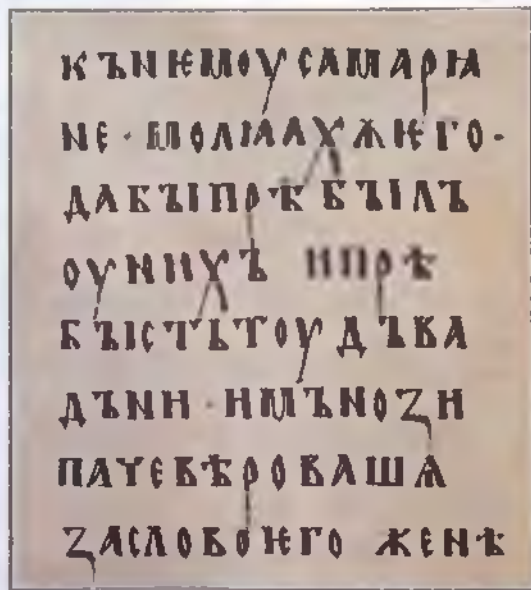 КЪНѤМОУСАМАРꙖ
НЕ · МОЛꙖАХѪѤГО ·
ДАБЪІПРѢБЪІЛЪ
ОУНИХЪ ИПРѢ
БЪІСТЬТОУ ДЪВА
ДЪНИ · ИМЪНОꙀИ
ПАЧЕВѢРОВАШѦ
ꙀАСЛОВОѤГО ЖЕНѢ